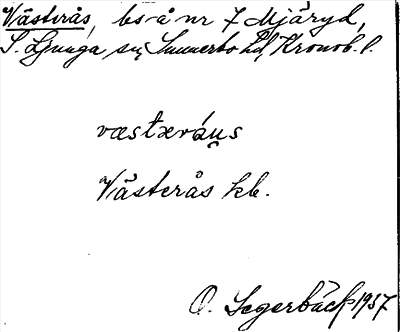 Västerås, bs å nr 7 Mjäryd,
S. Ljunga sn, Sunnerbo hd, Kronob. l.
væstæráns
Västerås kb.
O. Segerbäck 1937